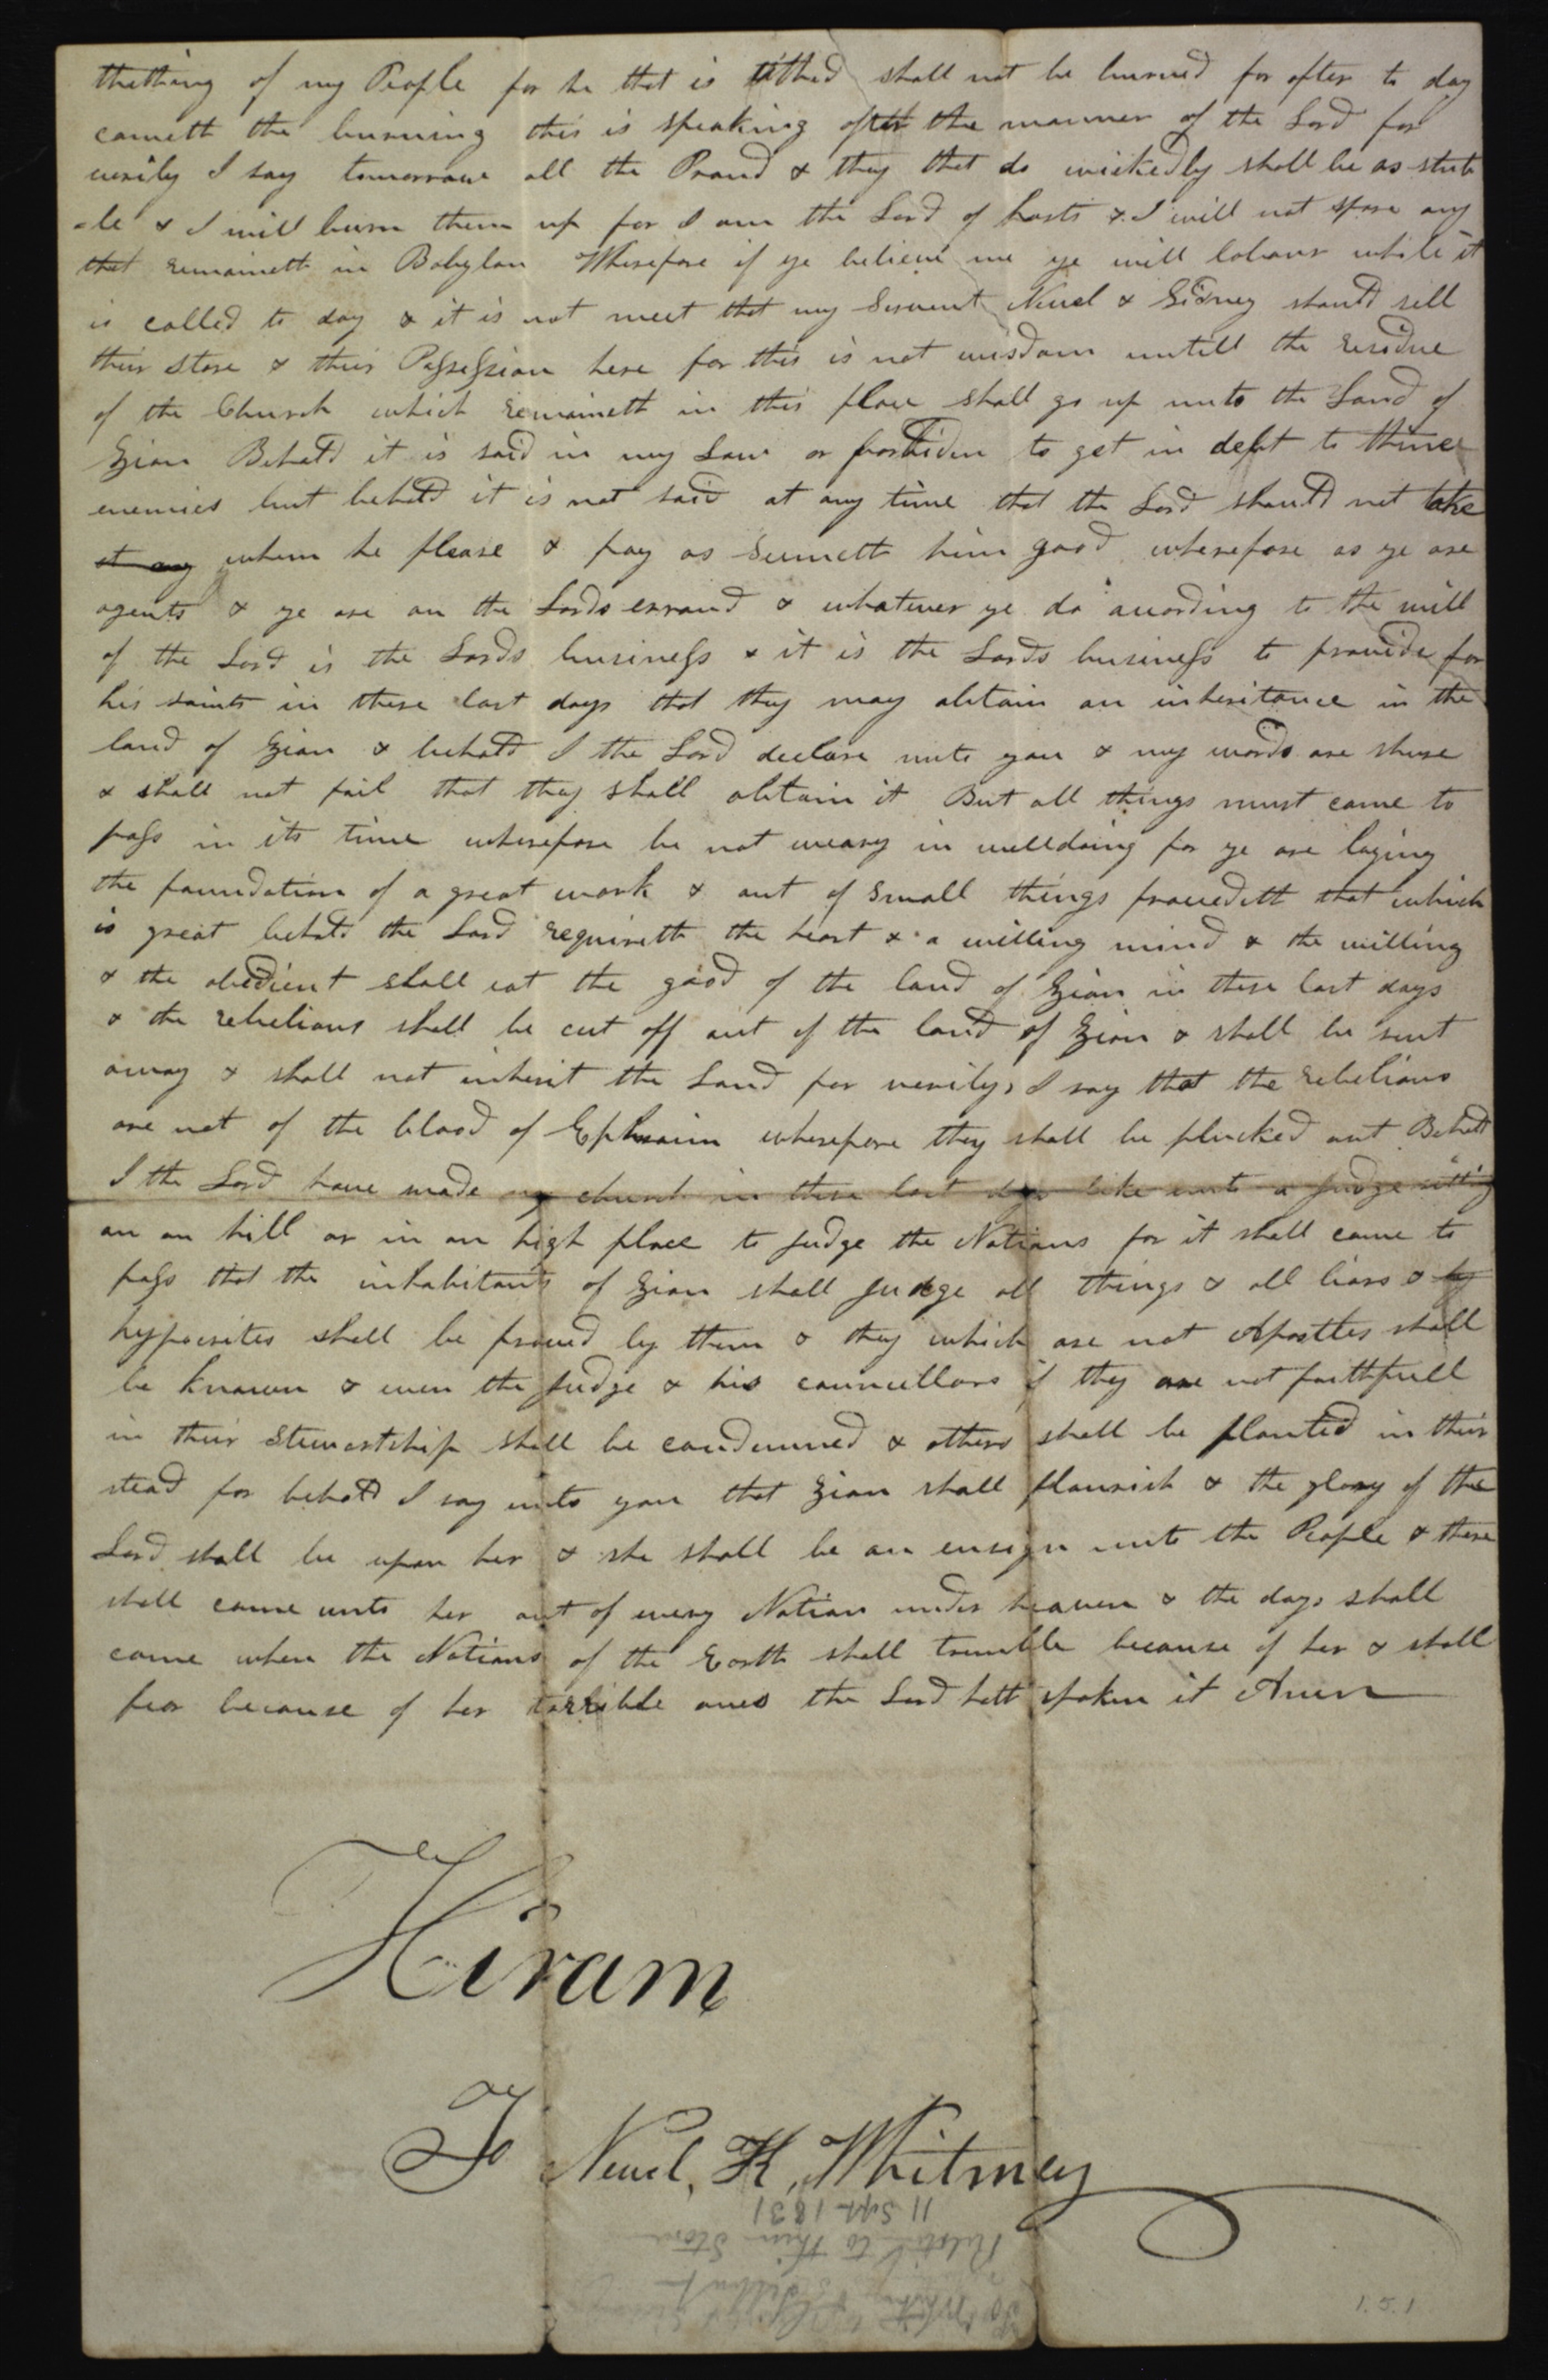 thething of my People for he that is tithed shall not be burned for after to day
cometh the burning this is speaking after the manner of the Lord for
verily I say tomorrow all the Proud & they that do wickedly shall be as stub
-le & I will burn them up for I am the Lord of hosts & I will not spare any
that remaineth in Babylon Wherefore if ye believe me ye will labour while it
is called to day & it is not meet that my Servent Newel & Sidney should sell
their store & their Possession here for this is not wisdom untill the residue
of the Church which remaineth in this place shall go up unto the Land of
Zion Behold it is said in my Law or forbiden to get in debt to thine
enemies but behold it is not said at any time that the Lord should not take
at any whom he please & pay as seemeth him good wherefore as ye are
agents & ye are on the Lords errand & whatever ye do according to the will
of the Lord is the Lords business & it is the Lords business to provide for
his saints in these last days that they may obtain an inheritance in the
land of Zion & behold I the Lord declare unto you & my words are shure
& shall not fail that they shall obtain it But all things must come to
pass in its time wherefore be not weary in welldoing for ye are laying
the foundation of a great work & out of small things proceedeth that which
is great behold the Lord requireth the heart & a willing mind & the willing
& the obedient shall eat the good of the land of Zion in these last days
& the rebelious shall be cut off out of the land of Zion & shall be sent
away & shall not inherit the Land for verily I say that the rebelious
are not of the blood of Ephraim wherefore they shall be plucked out Behold
I the Lord have made my church in these last days like unto a judge sitting
on an hill or in an high place to judge the Nations for it shall come to
pass that the inhabitants of Zion shall judge all things & all liars & hy
hypocrites shall be proved by them & they which are not Apostles shall
be known & even the judge & his councellors if they are not faithfull
in their stewartship shall be condemned & others shall be planted in their
stead for behold I say unto you that Zion shall flourish & the glory of the
Lord shall be upon her & she shall be an ensign unto the People & there
shall come unto her out of every Nation under heaven & the days shall
come when the Nations of the Earth shall tremble because of her & shall
fear because of her terrible ones the Lord hath spoken it Amen
Hiram
To Newel, K, Whitney
11 Sept. 1831
to their Store
1.5.1